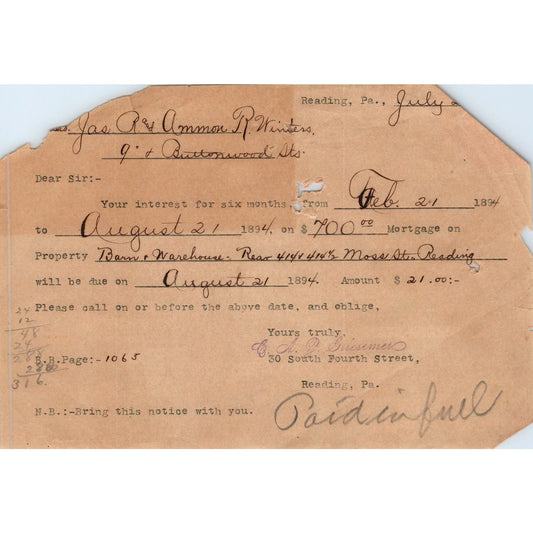 Reading, Pa., July
Jas. R. and Ammon R. Winters,
9" & Buttonwood Sts.
Dear Sir:-
Your interest for six months, from Feb. 21 1894
to August 21 1894, on $ 700.00 Mortgage on
Property Barn & Warehouse - Rear 414 & 414½ Moss St. Reading
will be due on August 21 1894. Amount $ 21.00:-
Please call on or before the above date, and oblige,
Yours truly,
30 South Fourth Street,
Reading, Pa.
B.B.Page:- 1065
N.B.:-Bring this notice with you.
Paid in full
24
12
48
24
316.